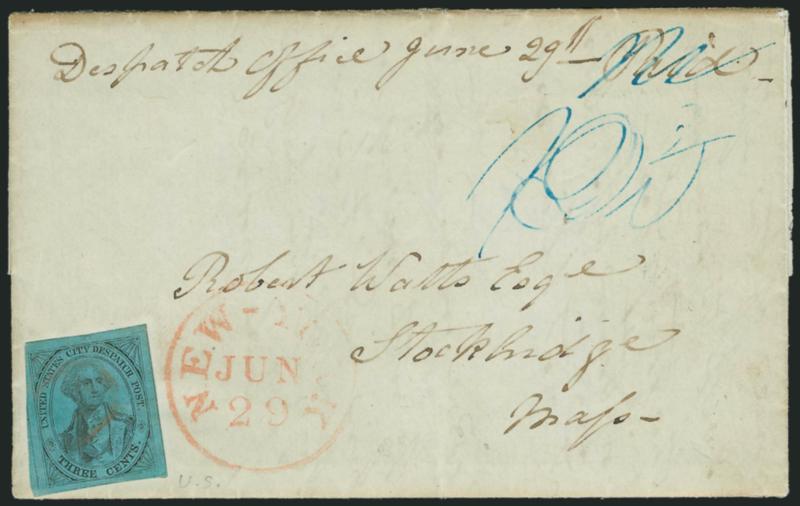 Despatch Office June 29th Paid
Robert Watts Esqe
Stockbridge
Mass
NEW-YORK
JUN
29
UNITED STATES CITY DESPATCH POST.
THREE CENTS.
U.S.